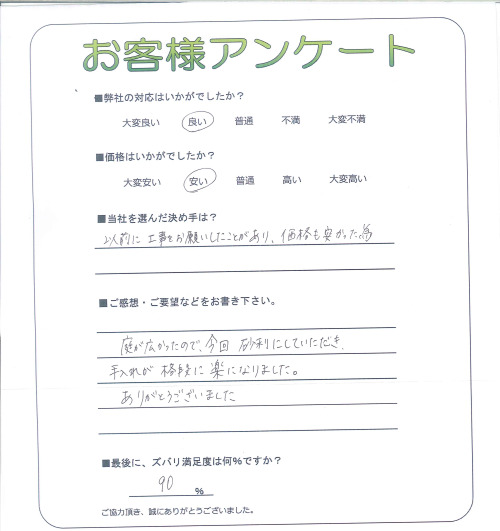 お客様アンケート
■弊社の対応はいかがでしたか？
大変良い 良い 普通 不満 大変不満
■価格はいかがでしたか？
大変安い 安い 普通 高い 大変高い
■当社を選んだ決め手は？
以前に工事をお願いしたことがあり、価格も安かった為
■ご感想・ご要望などをお書き下さい。
庭が広かったので、今回 砂利にしていただき、
手入れが 格段に 楽になりました。
ありがとうございました
■最後に、ズバリ満足度は何％ですか？
90 ％
ご協力頂き、誠にありがとうございました。